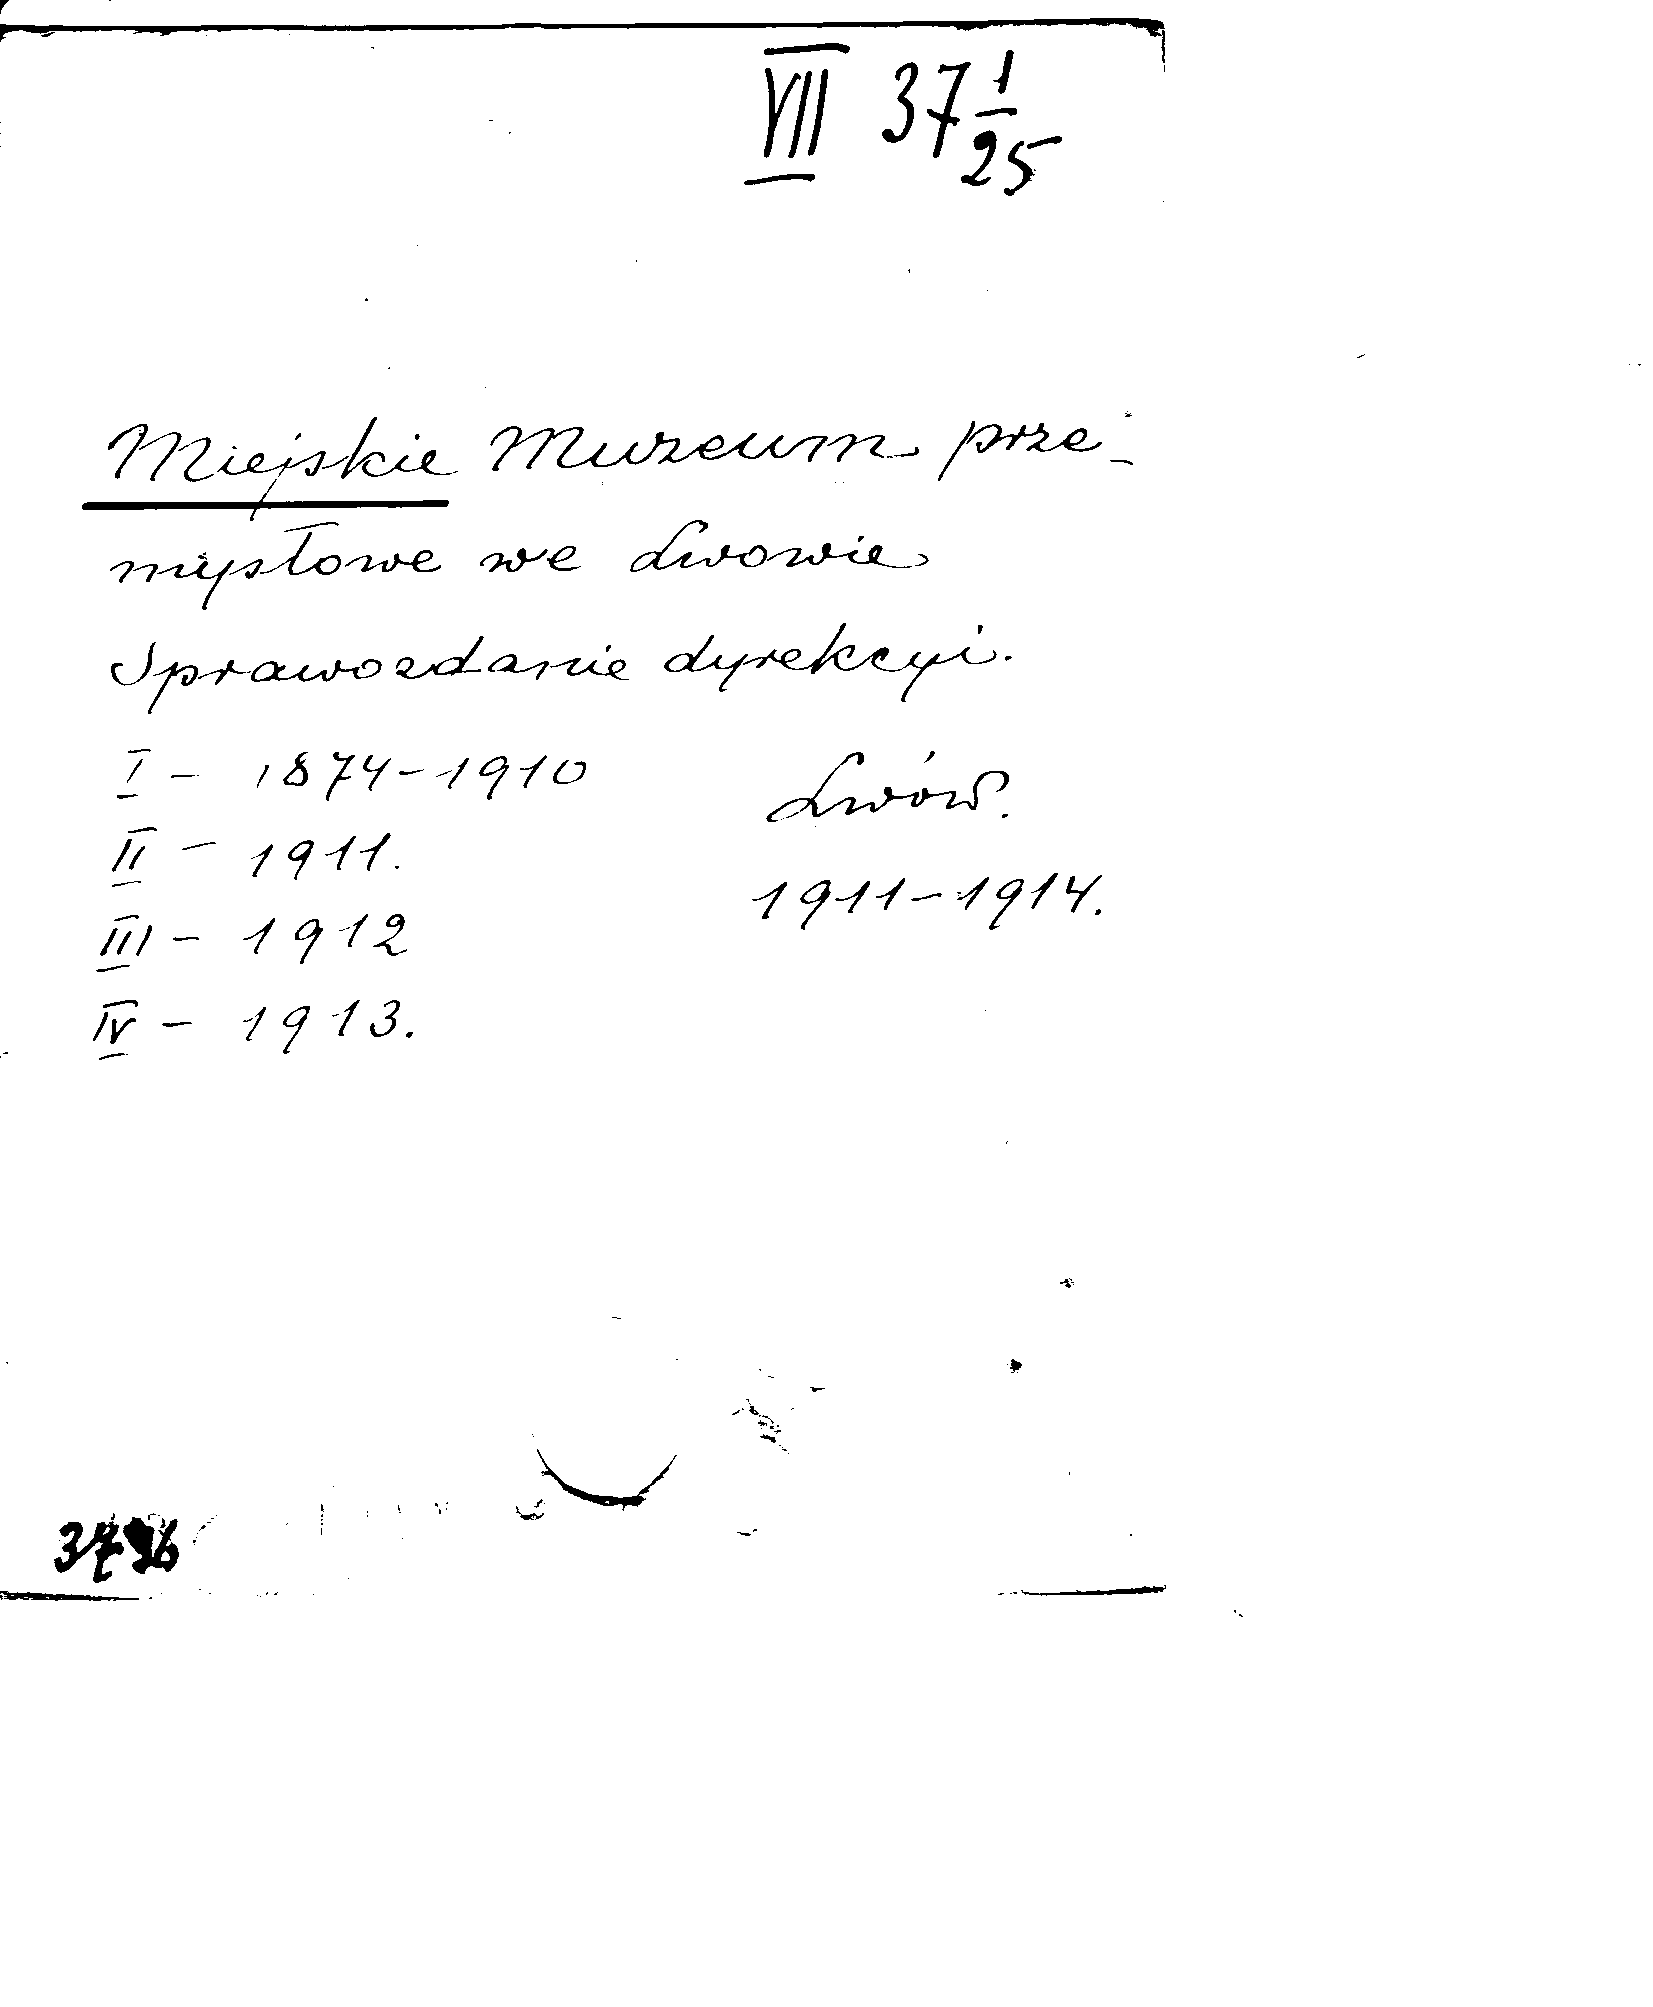 VII 37 1/25
Miejskie Muzeum prze-
mysłowe we Lwowie
Sprawozdanie dyrekcyi.
I - 1874-1910
II - 1911.
III - 1912
IV - 1913.
Lwów.
1911-1914.